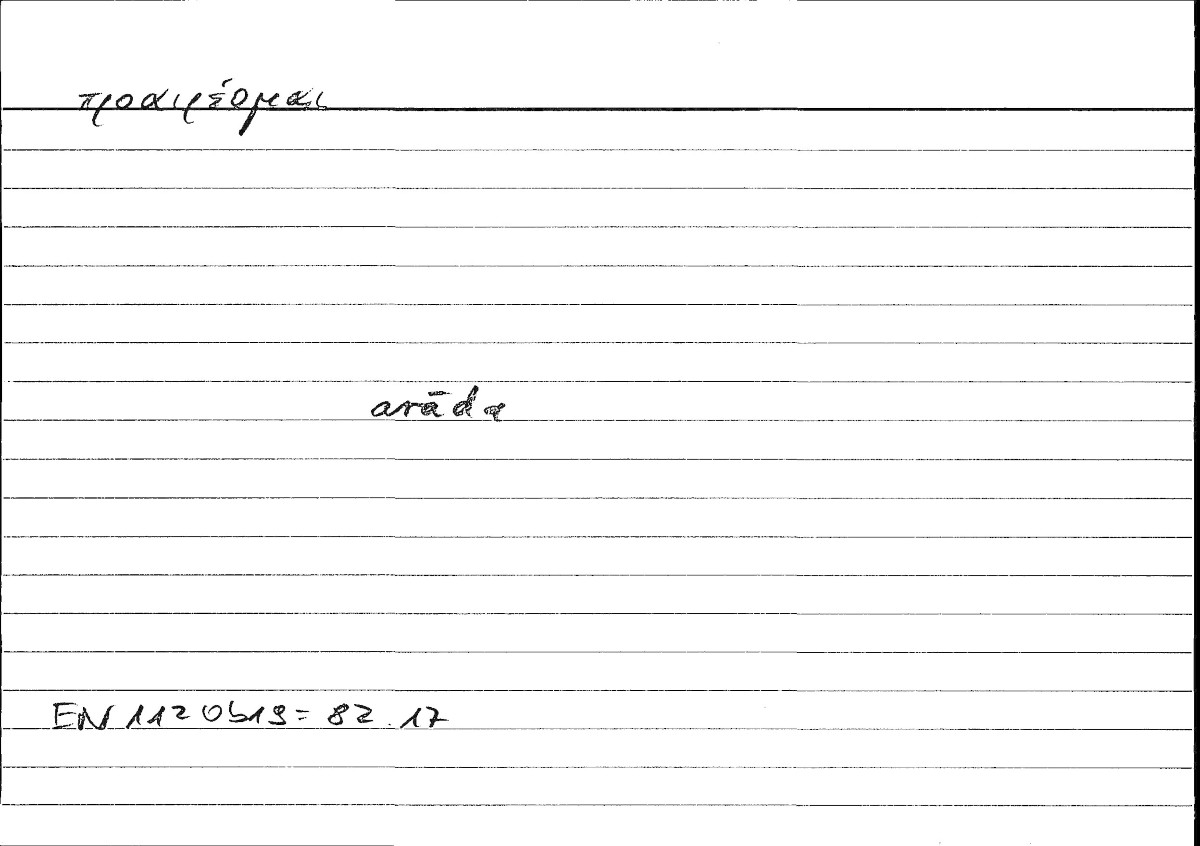 προαιρέομαι
arāda
EN 1120b19 = 82.17